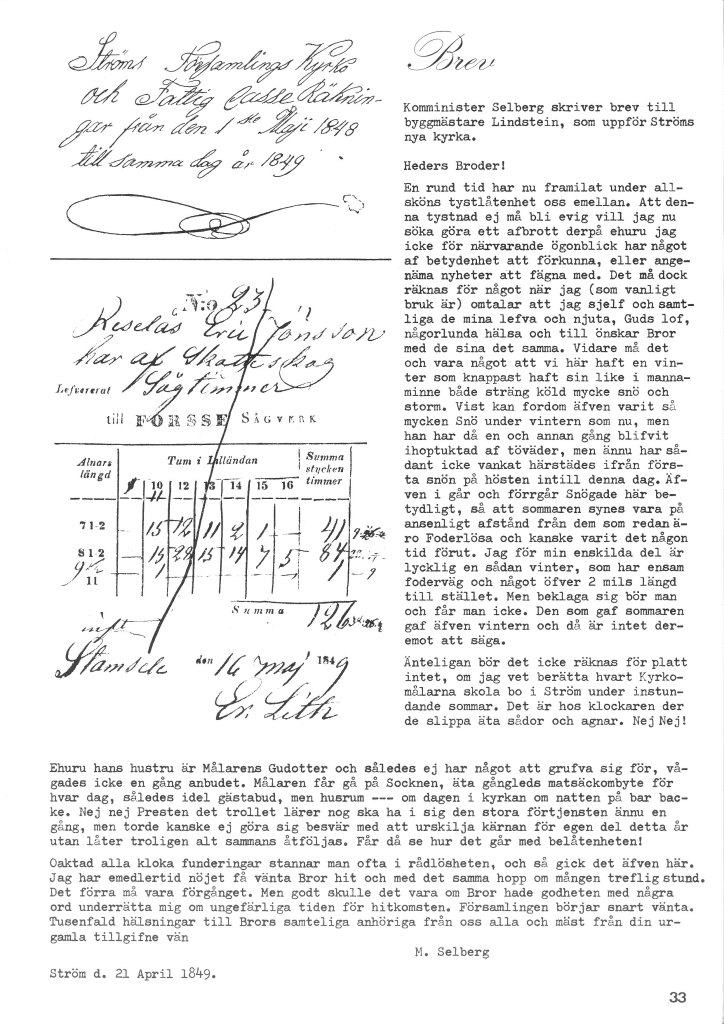 Ströms Församlings Kyrko
och Fattig Casse Räknin-
gar från den 1ste Maji 1848
till samma dag år 1849
N:o 23
Keselås Eric Jonsson
har af Skattskog
Lefvererat Sågtimmer
till FORSSE SÅGVERK
Alnars längd
Tum i Lilländan
Summa stycken timmer
10 12 13 14 15 16
11
7 1-2 15 12 11 2 1 41
8 1-2 15 28 15 14 7 5 84
9 1/2 1 1
11
Summa 126
Stamsele den 16 maj 1849
Er. Leth
Brev
Komminister Selberg skriver brev till
byggmästare Lindstein, som uppför Ströms
nya kyrka.
Heders Broder!
En rund tid har nu framilat under all-
sköns tystlåtenhet oss emellan. Att den-
na tystnad ej må bli evig vill jag nu
söka göra ett afbrott derpå ehuru jag
icke för närvarande ögonblick har något
af betydenhet att förkunna, eller ange-
näma nyheter att fägna med. Det må dock
räknas för något när jag (som vanligt
bruk är) omtalar att jag sjelf och samt-
liga de mina lefva och njuta, Guds lof,
någorlunda hälsa och till önskar Bror
med de sina det samma. Vidare må det
och vara något att vi här haft en vin-
ter som knappast haft sin like i manna-
minne både sträng köld mycke snö och
storm. Vist kan fordom äfven varit så
mycken Snö under vintern som nu, men
han har då en och annan gång blifvit
ihoptuktad af töväder, men ännu har så-
dant icke vankat härstädes ifrån förs-
ta snön på hösten intill denna dag. Äf-
ven i går och förrgår Snögade här be-
tydligt, så att sommaren synes vara på
ansenligt afstånd från dem som redan ä-
ro Foderlösa och kanske varit det någon
tid förut. Jag för min enskilda del är
lycklig en sådan vinter, som har ensam
foderväg och något öfver 2 mils längd
till stället. Men beklaga sig bör man
och får man icke. Den som gaf sommaren
gaf äfven vintern och då är intet der-
emot att säga.
Änteligan bör det icke räknas för platt
intet, om jag vet berätta hvart Kyrko-
målarna skola bo i Ström under instun-
dande sommar. Det är hos klockaren der
de slippa äta sådor och agnar. Nej Nej!
Ehuru hans hustru är Målarens Gudotter och således ej har något att grufva sig för, vå-
gades icke en gång anbudet. Målaren får gå på Socknen, äta gångleds matsäckombyte för
hvar dag, således idel gästabud, men husrum --- om dagen i kyrkan om natten på bar bac-
ke. Nej nej Presten det trollet lärer nog ska ha i sig den stora förtjensten ännu en
gång, men torde kanske ej göra sig besvär med att urskilja kärnan för egen del detta år
utan låter troligen alt sammans åtföljas. Får då se hur det går med belåtenheten!
Oaktad alla kloka funderingar stannar man ofta i rådlösheten, och så gick det äfven här.
Jag har emedlertid nöjet få vänta Bror hit och med det samma hopp om mången treflig stund.
Det förra må vara förgånget. Men godt skulle det vara om Bror hade godheten med några
ord underrätta mig om ungefärliga tiden för hitkomsten. Församlingen börjar snart vänta.
Tusenfald hälsningar till Brors samteliga anhöriga från oss alla och mäst från din ur-
gamla tillgifne vän
M. Selberg
Ström d. 21 April 1849.
33